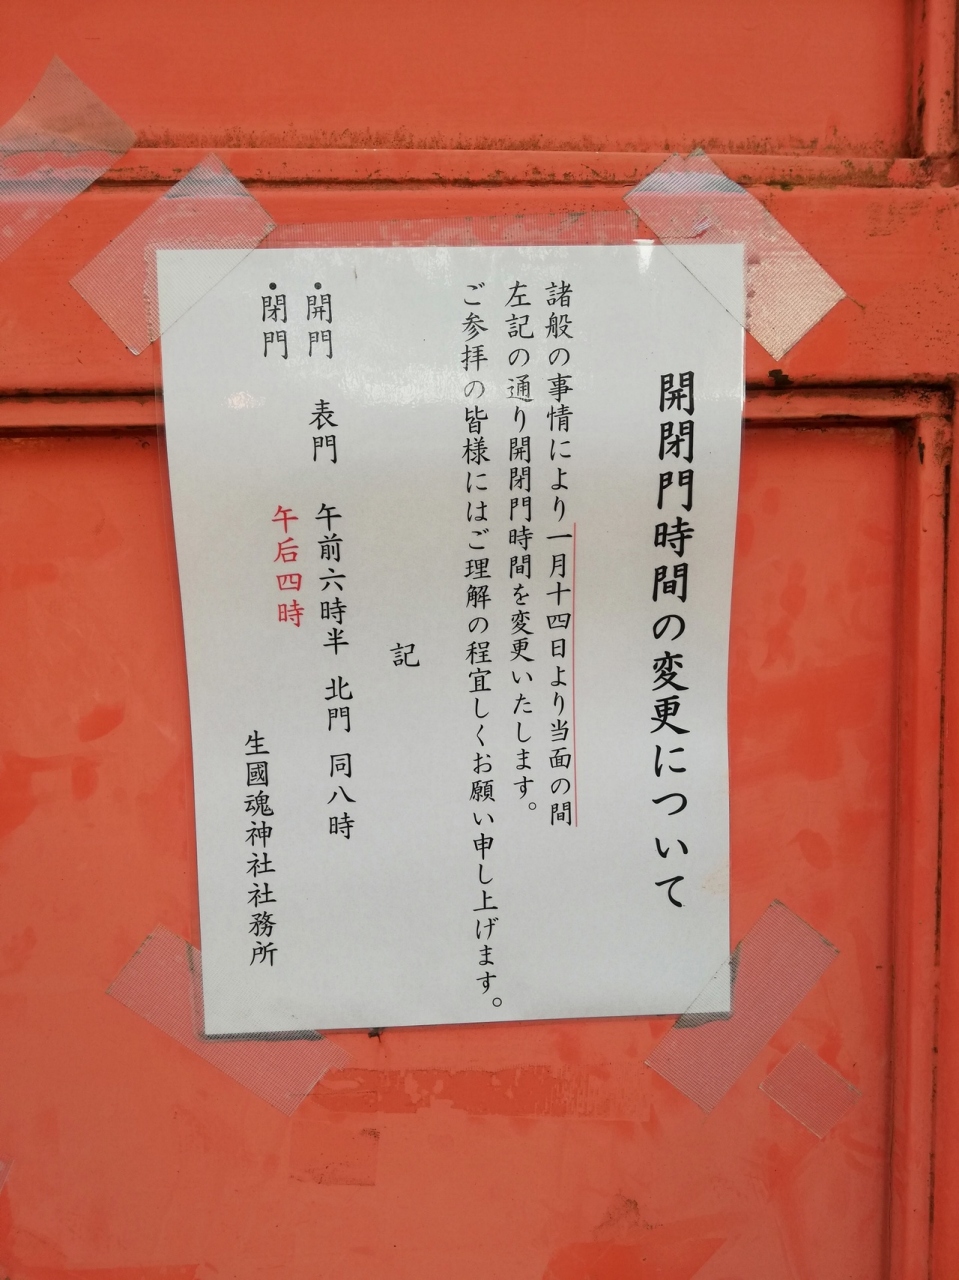 開閉門時間の変更について
諸般の事情により一月十四日より当面の間
左記の通り開閉門時間を変更いたします。
ご参拝の皆様にはご理解の程宜しくお願い申し上げます。
記
・開門 表門 午前六時半 北門 同八時
・閉門 午后四時
生國魂神社社務所